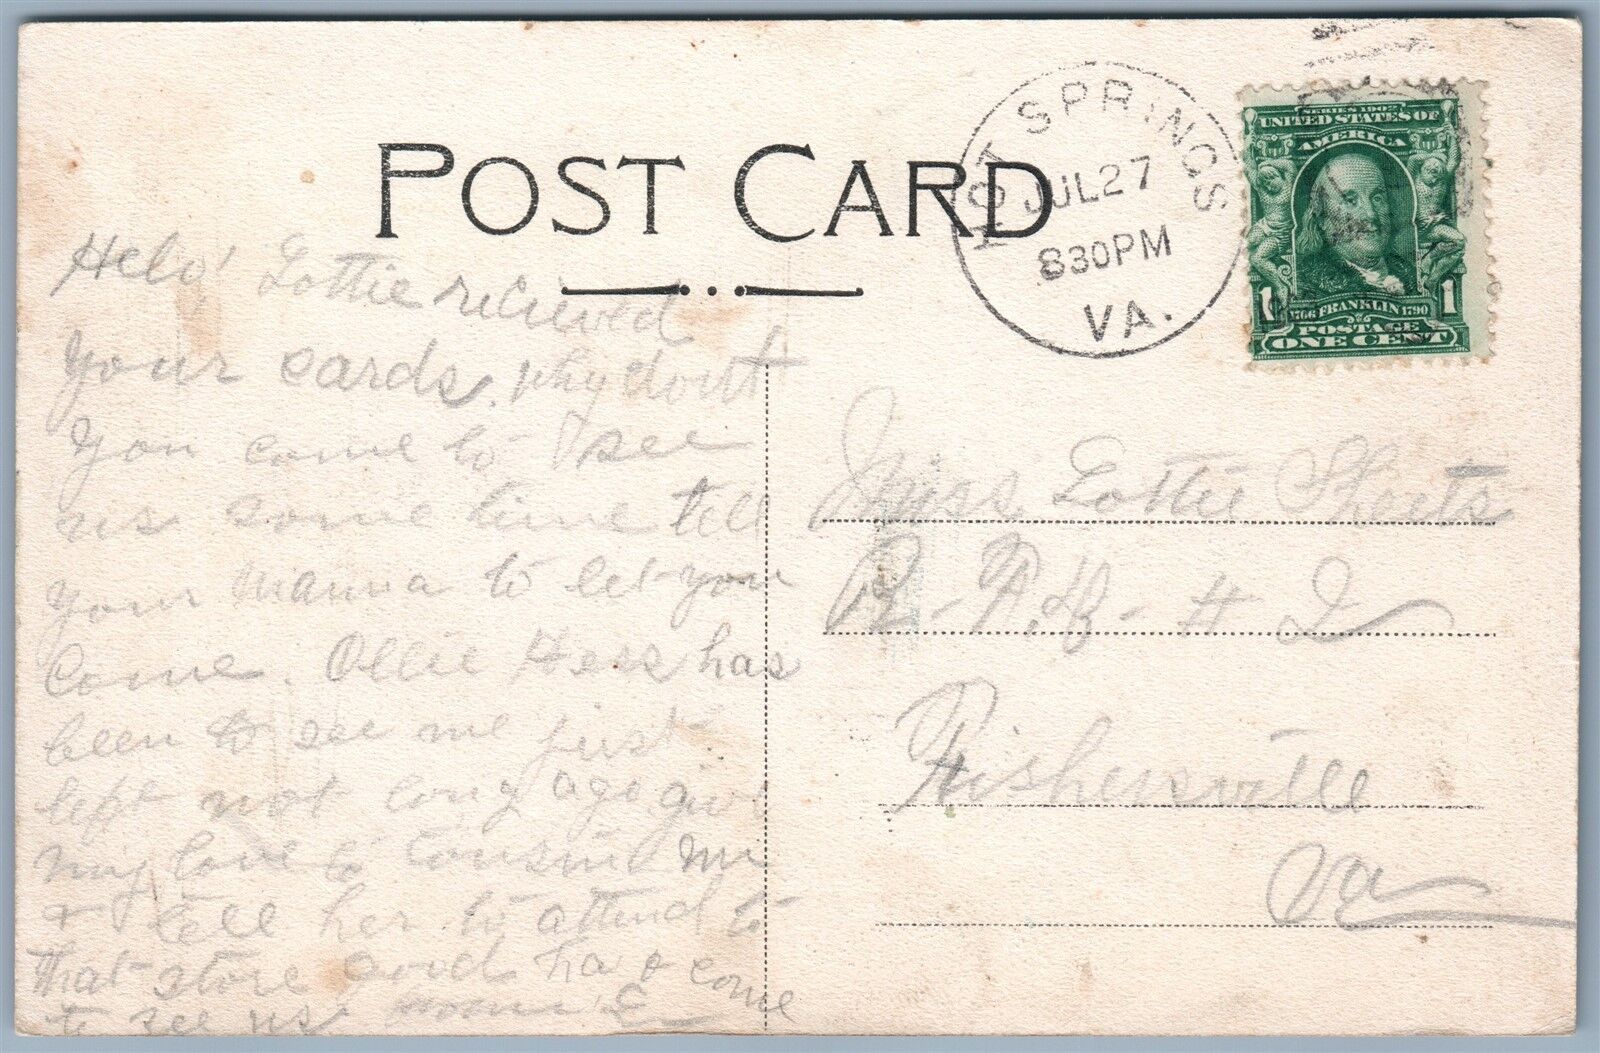 POST CARD
HOT SPRINGS
JUL 27
830PM
VA.
SERIES 1902
UNITED STATES OF
AMERICA
1 1706 FRANKLIN 1790 1
POSTAGE
ONE CENT
Helo' Lottie recieved
Your cards. Why dont
You come to see
us some time tell
your Mamma to let you
Come. Ollie Hess has
been to see me just
left not long ago give
my love to Cousin
& tell her to attend to
that store good ha & come
to see us
Miss Lottie Sheets
R. F. D. # 2
Fishersville
Va